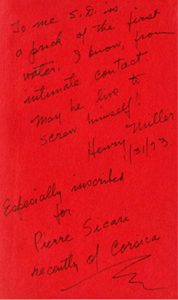 To me S.D. is
a prick of the first
water. I know, from
intimate contact
May he live to
screw himself!
Henry Miller
1/31/73
Especially inscribed
for
Pierre Sicari
recently of Corsica